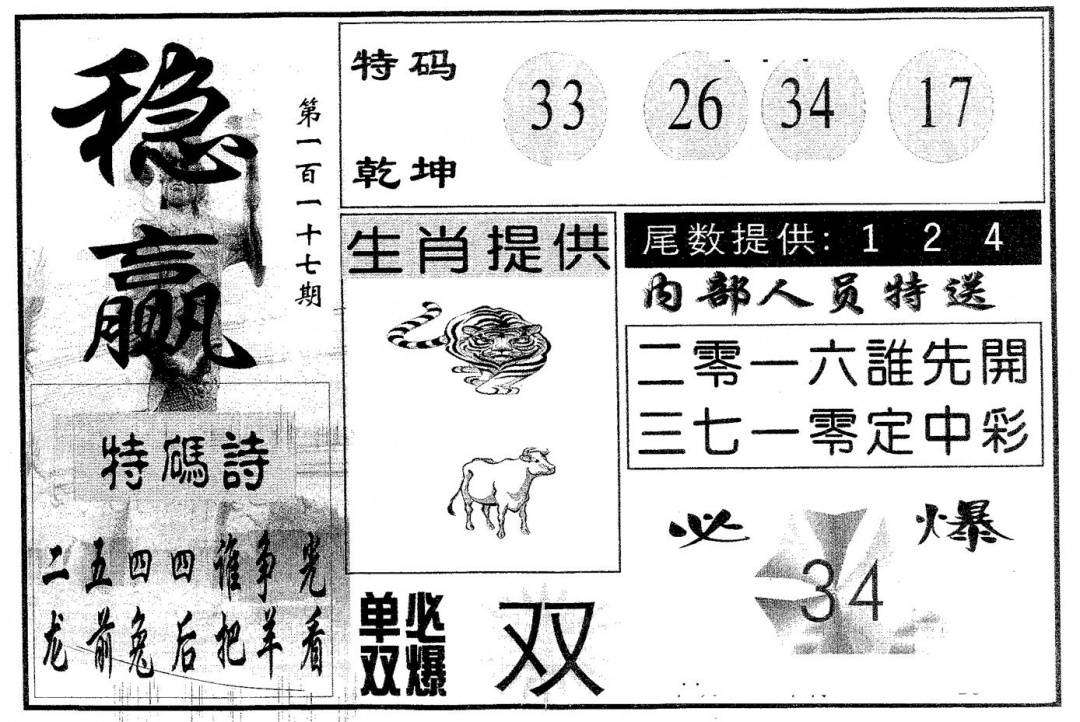 稳赢
第一百一十七期
特码
乾坤
33 26 34 17
生肖提供
尾数提供: 1 2 4
内部人员特送
二零一六誰先開
三七一零定中彩
特碼詩
二五四四谁争宪
龙前兔后把羊看
必爆
34
单双必爆
双